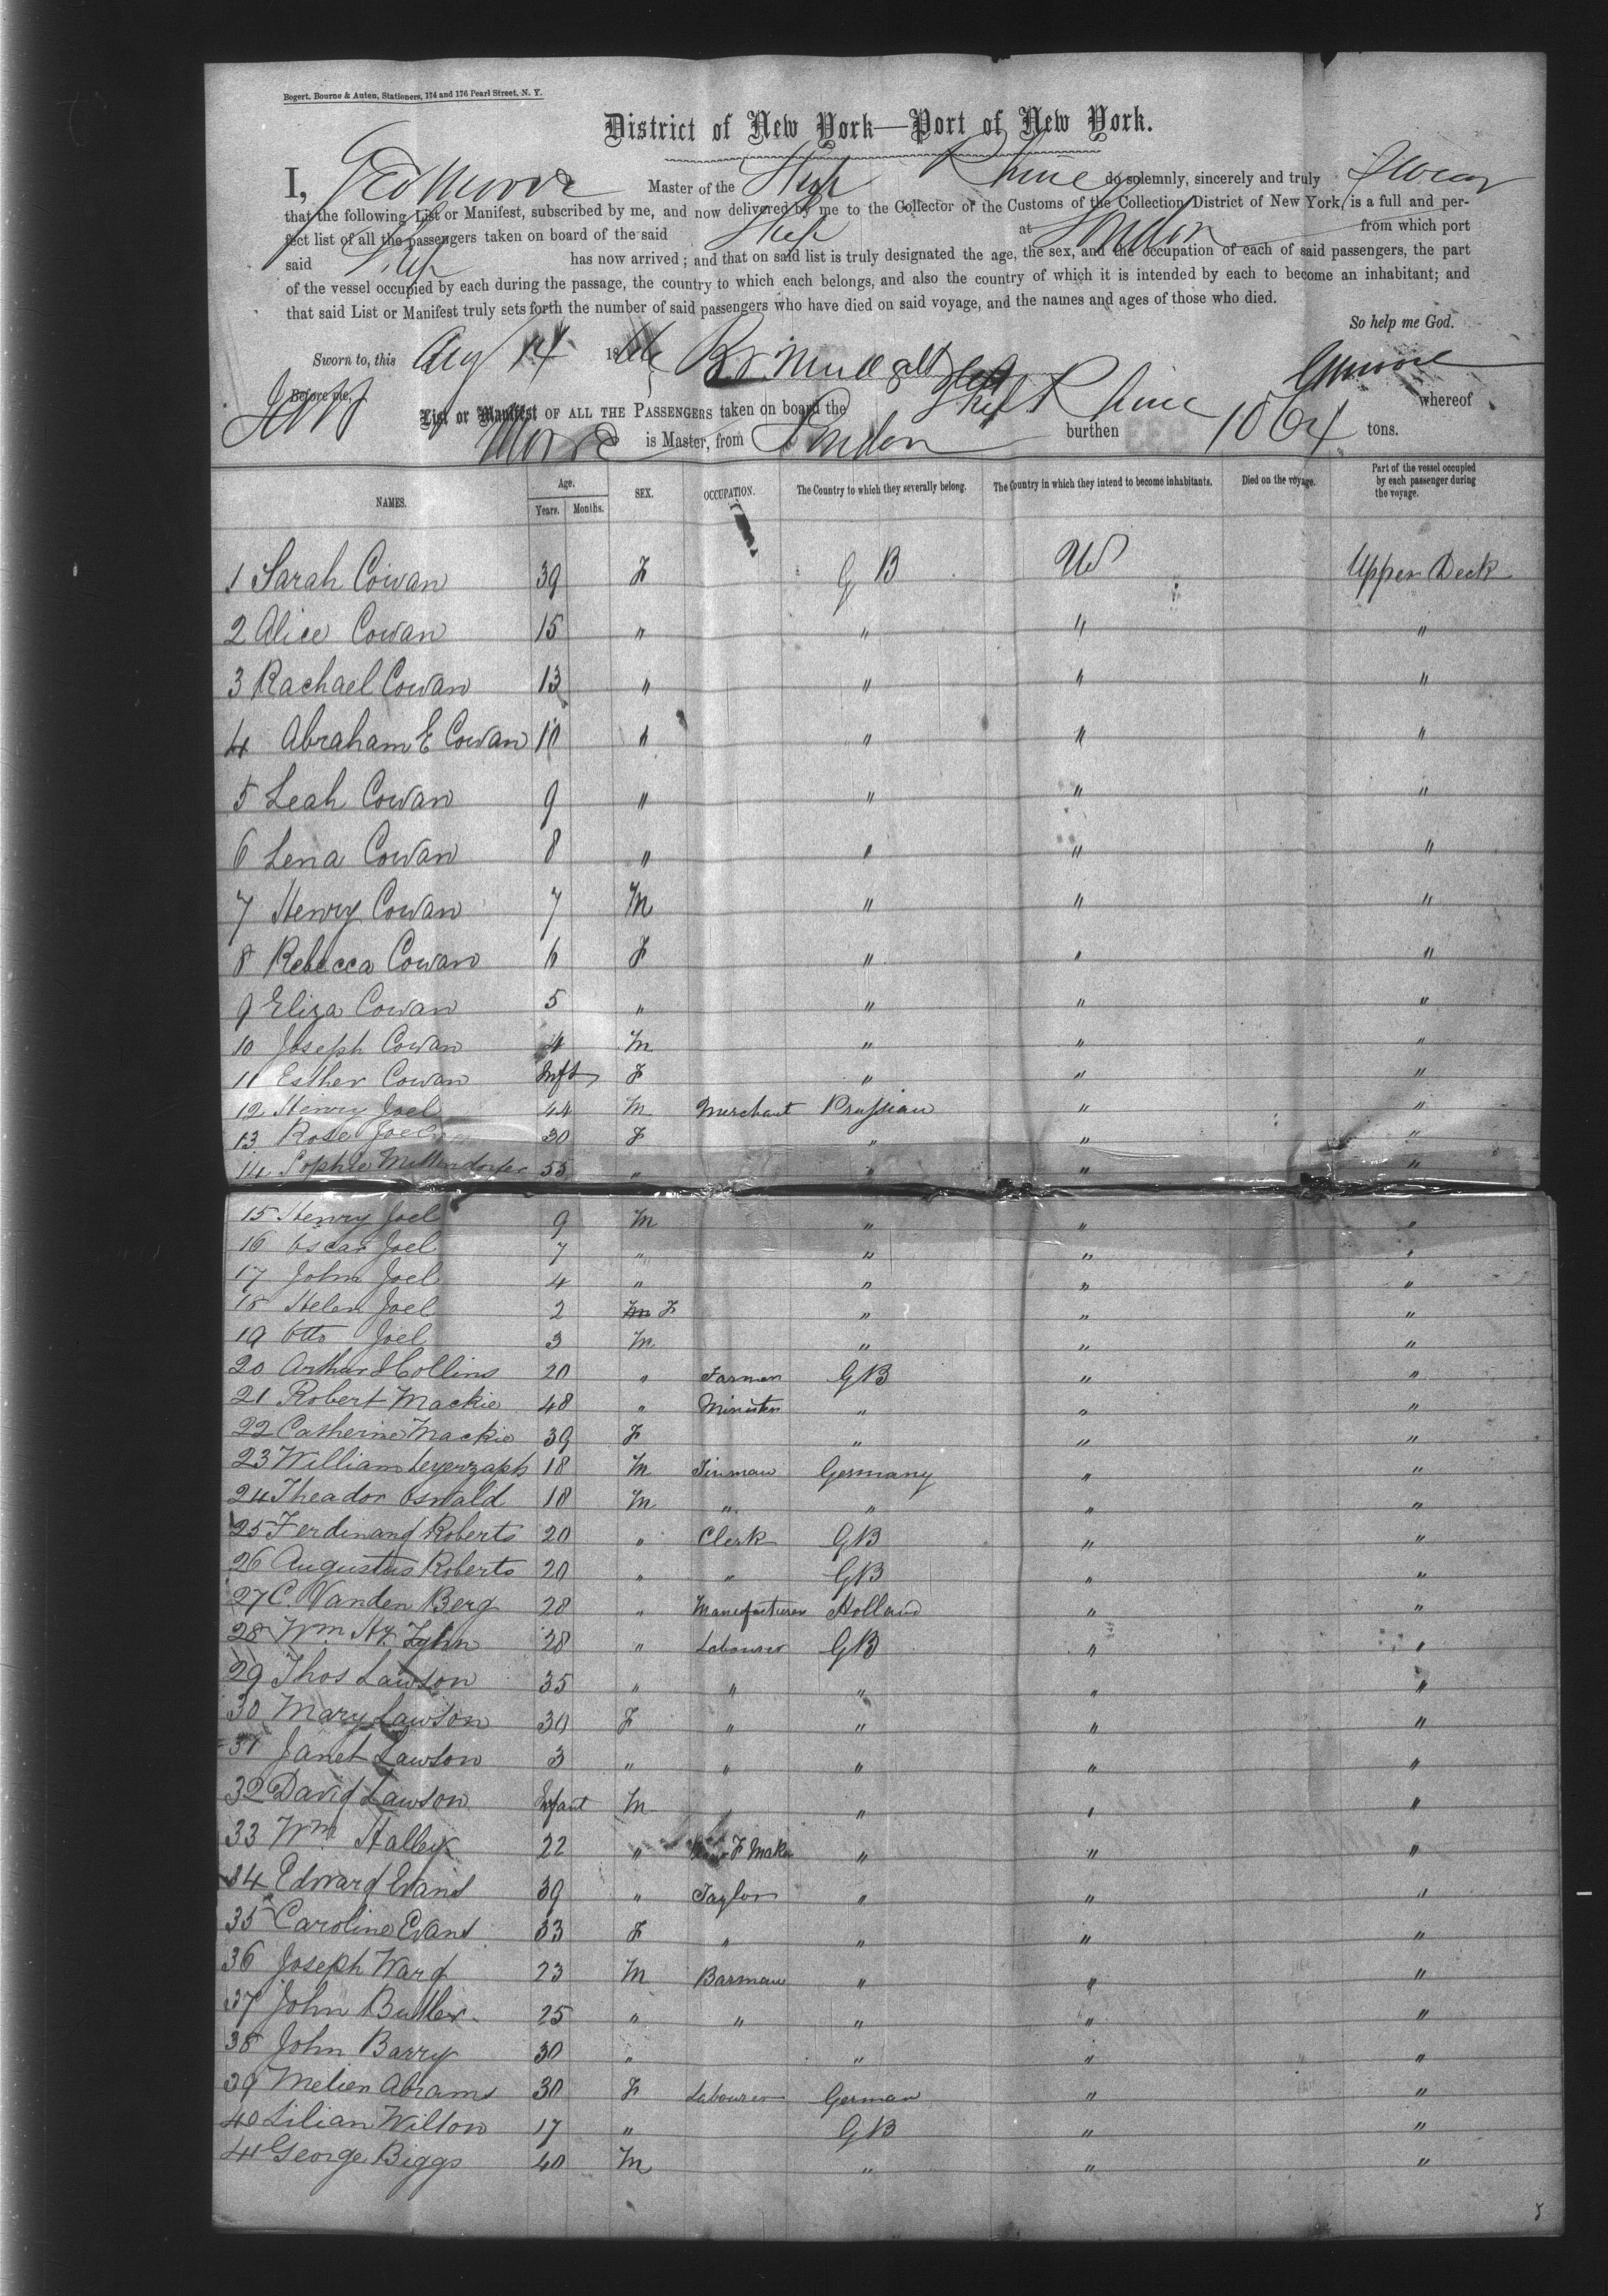 Bogert, Bourne & Auten, Stationers, 174 and 176 Pearl Street, N. Y.
District of New York—Port of New York.
I, Geo Moore Master of the Ship Rhine do solemnly, sincerely and truly Swear
that the following List or Manifest, subscribed by me, and now delivered by me to the Collector of the Customs of the Collection District of New York, is a full and per-
fect list of all the passengers taken on board of the said Ship at London from which port
said Ship has now arrived; and that on said list is truly designated the age, the sex, and the occupation of each of said passengers, the part
of the vessel occupied by each during the passage, the country to which each belongs, and also the country of which it is intended by each to become an inhabitant; and
that said List or Manifest truly sets forth the number of said passengers who have died on said voyage, and the names and ages of those who died.
So help me God.
Sworn to, this Aug 14 18
Before me, GMoore
List or Manifest OF ALL THE PASSENGERS taken on board the Ship Rhine whereof
Moore is Master, from London burthen 1064 tons.
NAMES. Age. Years. Months. SEX. OCCUPATION. The Country to which they severally belong. The Country in which they intend to become inhabitants. Died on the voyage. Part of the vessel occupied by each passenger during the voyage.
1 Sarah Cowan 39 F G B US Upper Deck
2 Alice Cowan 15 " " " "
3 Rachael Cowan 13 " " " "
4 Abraham E Cowan 10 " " " "
5 Leah Cowan 9 " " " "
6 Lena Cowan 8 " " " "
7 Henry Cowan 7 M " " "
8 Rebecca Cowan 6 F " " "
9 Eliza Cowan 5 " " " "
10 Joseph Cowan 4 M " " "
11 Esther Cowan Inft F " " "
12 Henry Joel 44 M Merchant Prussian " "
13 Rose Joel 30 F " " "
14 Sophie Mettendorfer 55 " " " "
15 Henry Joel 9 M " " "
16 Oscar Joel 7 " " " "
17 John Joel 4 " " " "
18 Helen Joel 2 F " " "
19 Otto Joel 3 M " " "
20 Arthur Collins 20 " Farmer GB " "
21 Robert Mackie 48 " Minister " " "
22 Catherine Mackie 39 F " " "
23 William 18 M Tinman Germany " "
24 Theador Oswald 18 M " " " "
25 Ferdinand Roberts 20 " Clerk GB " "
26 Augustus Roberts 20 " " GB " "
27 C. Vanden Berg 28 " Manufacturer Holland " "
28 Wm Hy 28 " Labourer GB " "
29 Thos Lawson 35 " " " " "
30 Mary Lawson 30 F " " " "
31 Janet Lawson 3 " " " " "
32 David Lawson Infant M " " " "
33 Wm Halley 22 " F Maker " " "
34 Edward Evans 39 " Taylor " " "
35 Caroline Evans 33 F " " " "
36 Joseph Ward 23 M Barman " " "
37 John Butler 25 " " " " "
38 John Barry 30 " " " "
39 Melien Abrams 30 F Labourer German " "
40 Lilian Wilton 17 " GB " "
41 George Biggs 40 M " " "